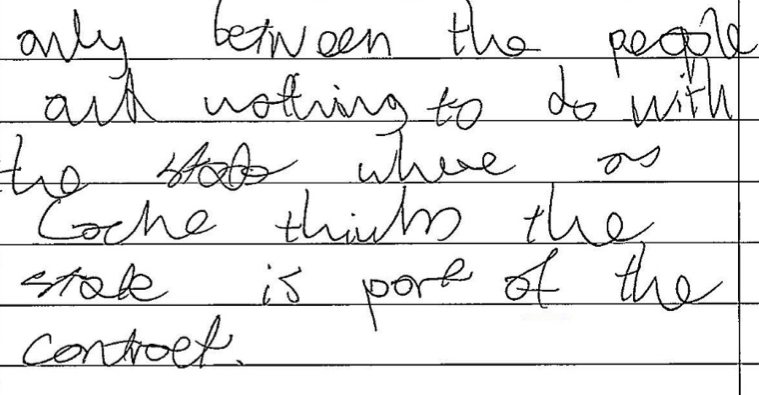 only between the people
and nothing to do with
the state where as
Locke thinks the
state is part of the
contract.